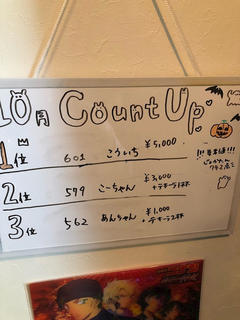 10月 Count Up
1位 601 こういち ¥5,000
2位 579 こーちゃん ¥3,000
+テキーラ1杯
3位 562 あんちゃん ¥1,000
+テキーラ2杯